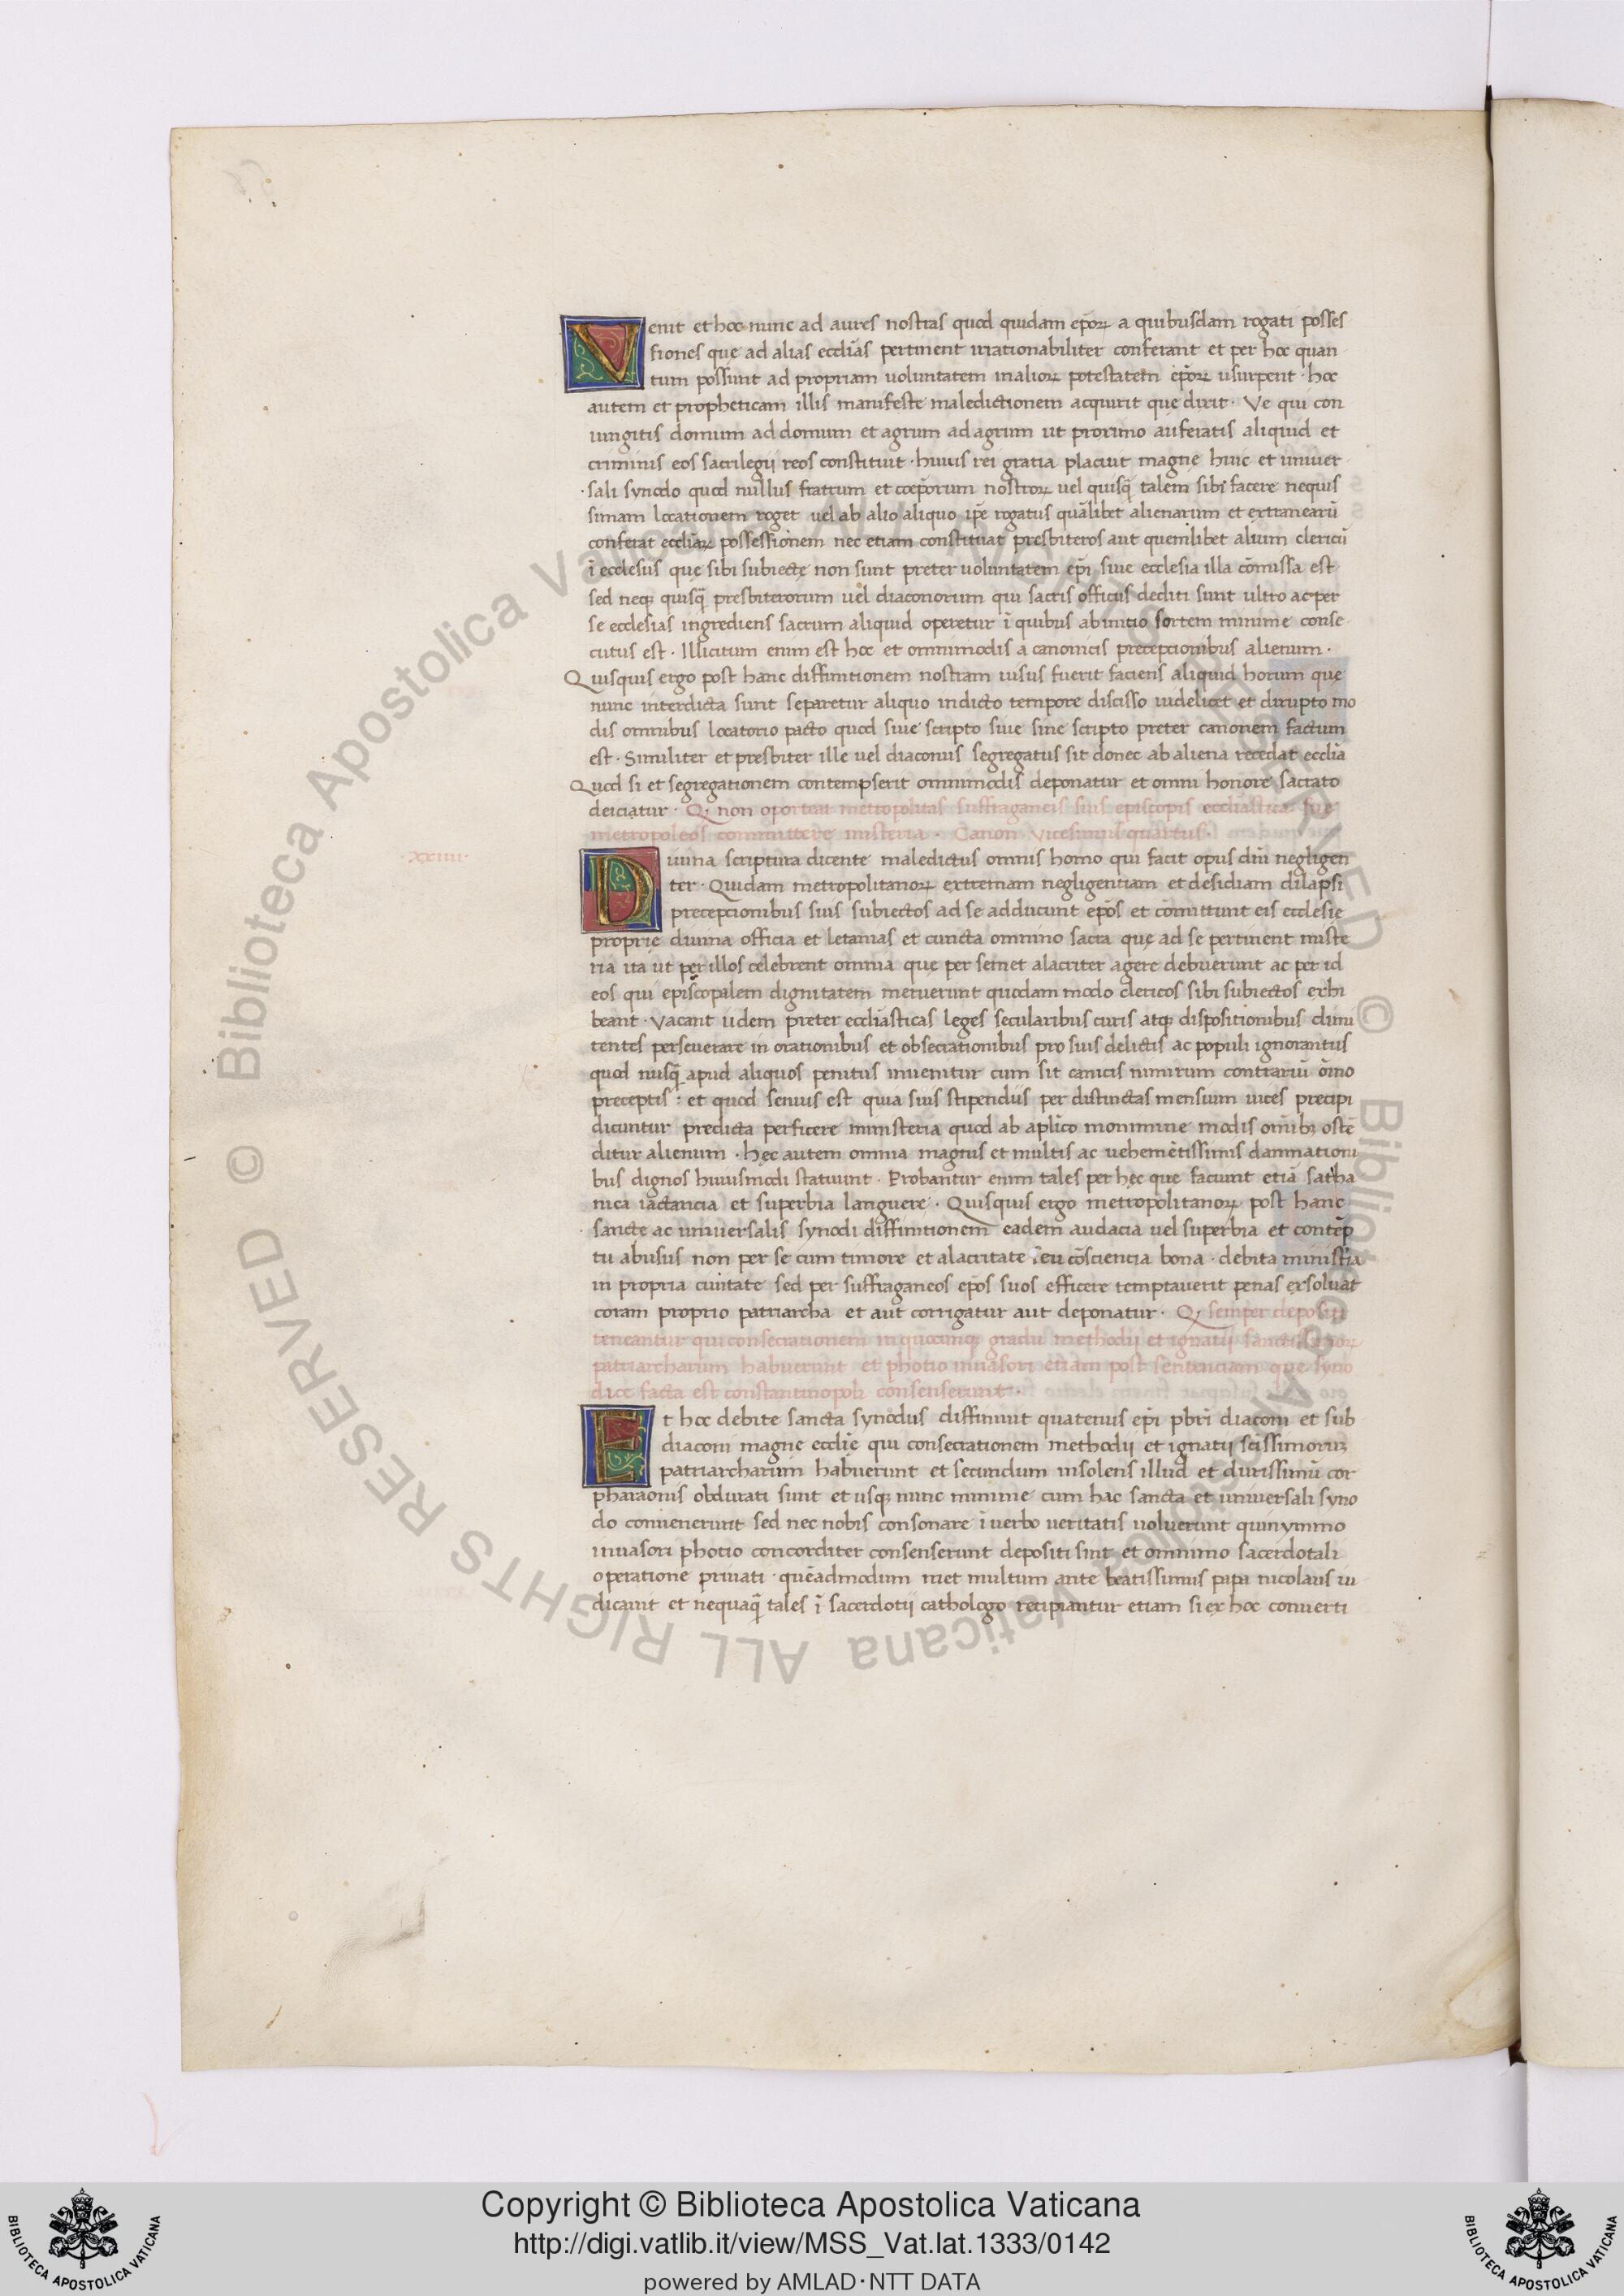 Venit et hoc nunc ad aures nostras quod quidam ep̄oꝝ a quibusdam rogati posses
siones que ad alias eccl̄ias pertinent irrationabiliter conferant et per hoc quan
tum possunt ad propriam uoluntatem in alioꝝ potestatem ep̄oꝝ usurpent · hoc
autem et propheticam illis manifeste maledictionem acquirit que dixit · Ve qui con
iungitis domum ad domum et agrum ad agrum ut proximo auferatis aliquid et
criminis eos sacrilegij reos constituit · huius rei gratia placuit magne huic et uniuer
sali synodo quod nullus fratrum et coep̄orum nostroꝝ uel quisq̄ talem sibi facere nequis
simam locationem roget uel ab alio aliquo ip̄e rogatus quālibet alienarum et extranearū
conferat eccl̄iaꝝ possessionem nec etiam constituat presbiteros aut quemlibet alium clericū
ī ecclesiis que sibi subiectę non sunt preter uoluntatem ep̄i siue ecclesia illa cōmissa est
sed neqꝫ quisq̄ presbiterorum uel diaconorum qui sacris officiis dediti sunt ultro ac per
se ecclesias ingrediens sacrum aliquid operetur ī quibus ab initio sortem minime conse
cutus est · Illicitum enim est hoc et omnimodis a canonicis precepcionibus alienum ·
Quisquis ergo post hanc diffinitionem nostram uisus fuerit faciens aliquid horum que
nunc interdicta sunt separetur aliquo indicto tempore discisso uidelicet et dirupto mo
dis omnibus locatorio pacto quod siue scripto siue sine scripto preter canonem factum
est · Similiter et presbiter ille uel diaconus segregatus sit donec ab aliena recedat eccl̄ia
Quod si et segregationem contempserit omnimodis deponatur et omni honore sacrato
deiciatur · Qꝫ non oporteat metropolitas suffraganeis suis episcopis eccl̄iastica sue
metropoleos committere misteria · Canon vicesimus quartus ·
· xxiiii ·
Diuina scriptura dicente maledictus omnis homo qui facit opus dn̄i negligen
ter · Quidam metropolitanoꝝ extremam negligentiam et desidiam dilapsi
precepcionibus suis subiectos ad se adducunt ep̄os et cōmittunt eis ecclesię
proprię diuina officia et letanias et cuncta omnino sacra que ad se pertinent miste
ria ita ut per illos celebrent omnia que per semet alacriter agere debuerunt ac per id
eos qui episcopalem dignitatem meruerunt quodam modo clericos sibi subiectos exhi
beant · Vacant iidem preter eccl̄iasticas leges secularibus curis atqꝫ dispositionibus dimi
tentes perseuerare in orationibus et obsecrationibus pro suis delictis ac populi ignorantiis
quod nusq̄ apud aliquos penitus inuenitur cum sit canicis nimirum contrariū ōino
preceptis : et quod seuius est quia suis stipendiis per distinctas mensium uices precipi
dicuntur predicta perficere ministeria quod ab apl̄ico monimine modis omībꝫ ostē
ditur alienum · hęc autem omnia magnis et multis ac uehemētissimis damnationi
bus dignos huiusmodi statuunt · Probantur enim tales per hęc que faciunt etiā satha
nica iactancia et superbia languere · Quisquis ergo metropolitanoꝝ post hanc
sancte ac uniuersalis synodi diffinitionem eadem audacia uel superbia et contēp
tu abusus non per se cum timore et alacritate seu cōsciencia bona · debita ministīa
in propria ciuitate sed per suffraganeos ep̄os suos efficere temptauerit penas exsoluat
coram proprio patriarcha et aut corrigatur aut deponatur · Qꝫ semper depositi
teneantur qui consecrationem in quocunqꝫ gradu methodij et ignatij sanctissimoꝝ
patriarcharum habuerunt et photio inuasori etiam post sentenciam que syno
dice facta est constantinopoli consenserunt ·
Et hoc debite sancta synodus diffiniuit quatenus ep̄i pbr̄i diaconi et sub
diaconi magne eccl̄ie qui consecrationem methodij et ignatij sc̄issimoruꝫ
patriarcharum habuerunt et secundum insolens illud et durissimū cor
pharaonis obdurati sunt et usqꝫ nunc minime cum hac sancta et uniuersali syno
do conuenerunt sed nec nobis consonare ī uerbo ueritatis uoluerunt quin ymmo
inuasori photio concorditer consenserunt depositi sint et omnino sacerdotali
operatione priuati · quēadmodum niet multum ante beatissimus papa nicolaus iu
dicauit et nequaq̄ tales ī sacerdotij cathologo recipiantur etiam si ex hoc conuerti
Copyright © Biblioteca Apostolica Vaticana
http://digi.vatlib.it/view/MSS_Vat.lat.1333/0142
powered by AMLAD·NTT DATA
BIBLIOTECA APOSTOLICA VATICANA
BIBLIOTECA APOSTOLICA VATICANA
© Biblioteca Apostolica Vaticana ALL RIGHTS RESERVED © Biblioteca Apostolica Vaticana ALL RIGHTS RESERVED